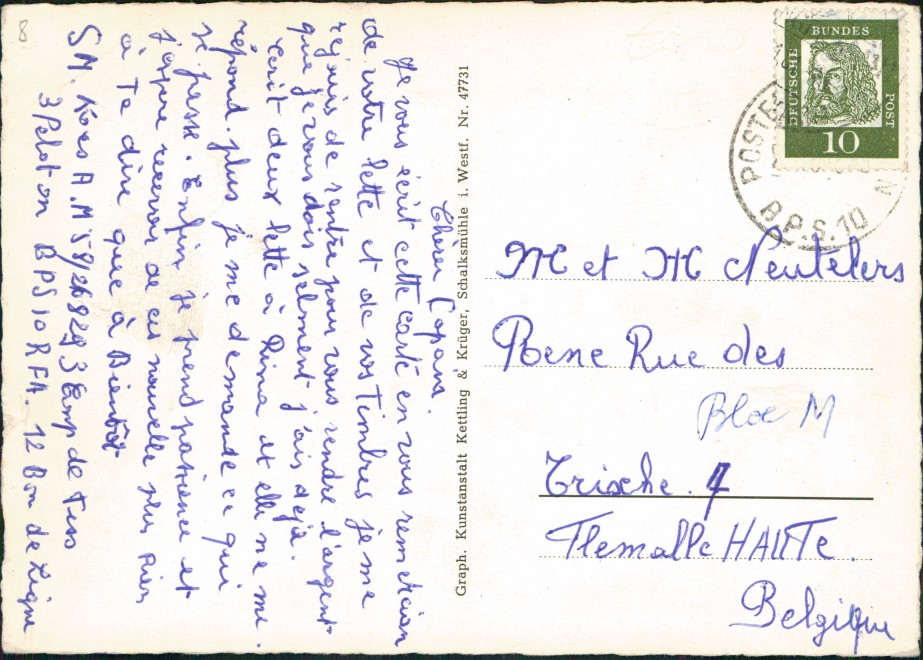 8
Chère Copana.
Je vous écrit cette carte en vous remercian
de votre lette et de vos Timbres je me
rejouis de rentré pour vous rendre l'argent
que je vous dois selment j'ais deja.
ecrit deux lette à Rina et elle ne mi.
répond. plus je me demande ce qui
se passe. Enfin je prend patience et
j'espere recevoir de ces nouvelle plus Rien
a Te dire que à Bientôt
SM. A.M 58/26829 3 Emp de
3 Peloton BPS 10 RFA. 12 Bon de Ligne
Graph. Kunstanstalt Kettling & Krüger, Schalksmühle i. Westf. Nr. 47731
DEUTSCHE
BUNDES
POST
10
B.P.S. 10
M et M Neutelers
Rene Rue des
Bloc M
Trixhe. 4
Flemalle HAUTe.
Belgique